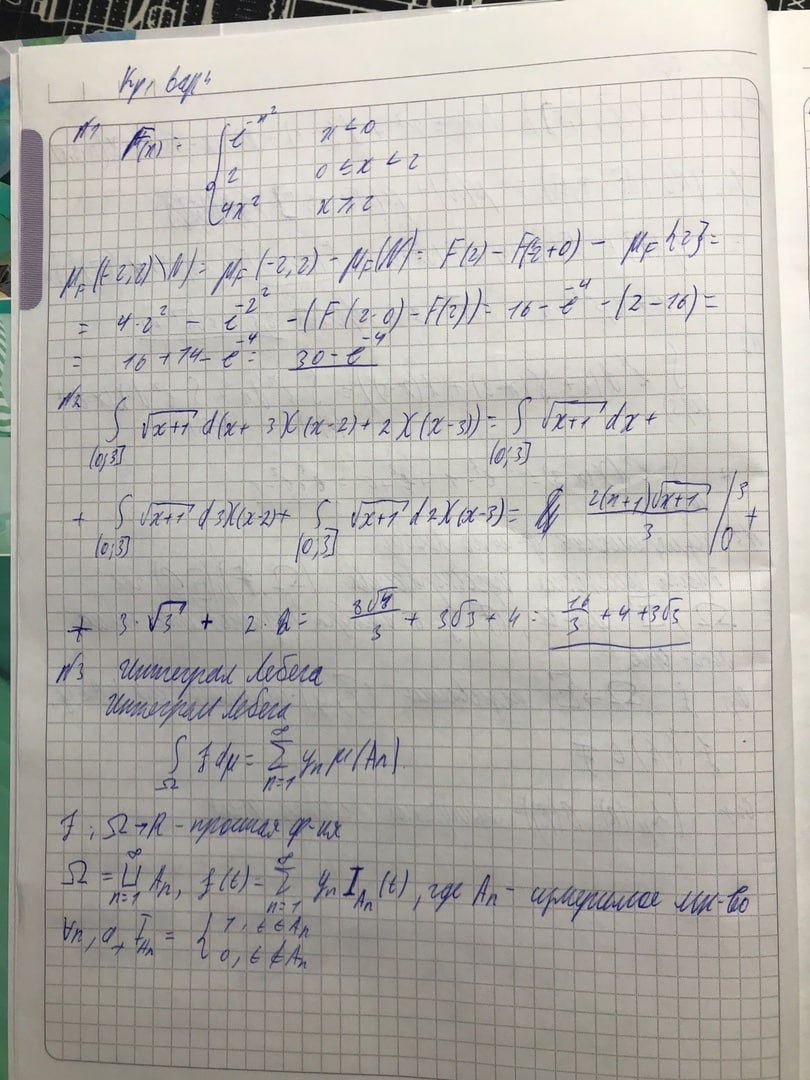 Кр1 вар4
N1 F(x) = { e^{-x^2} x < 0
2 0 ≤ x < 2
4x^2 x ≥ 2
μ_F((-2,2)\N) = μ_F(-2,2) - μ_F(N) = F(2) - F(-2+0) - μ_F{2} =
= 4·2^2 - e^{-2^2} - (F(2-0) - F(2)) = 16 - e^{-4} - (2-16) =
= 16 + 14 - e^{-4} = 30 - e^{-4}
N2
∫_{(0;3]} √(x+1) d(x + 3χ(x-2) + 2χ(x-3)) = ∫_{(0;3]} √(x+1) dx +
+ ∫_{(0;3]} √(x+1) d3χ(x-2) + ∫_{(0;3]} √(x+1) d2χ(x-3) = 2(x+1)√(x+1)/3 |_0^3 +
+ 3·√3 + 2·2 = 8√4/3 + 3√3 + 4 = 16/3 + 4 + 3√3
N3 Интеграл Лебега
Интеграл Лебега
∫_Ω f dμ = ∑_{n=1}^∞ y_n μ(A_n).
f: Ω → R - простая ф-ия
Ω = ⊔_{n=1}^∞ A_n, f(t) = ∑_{n=1}^∞ y_n I_{A_n}(t), где A_n - измеримое мн-во
I_{A_n} = { 1, t ∈ A_n
0, t ∉ A_n